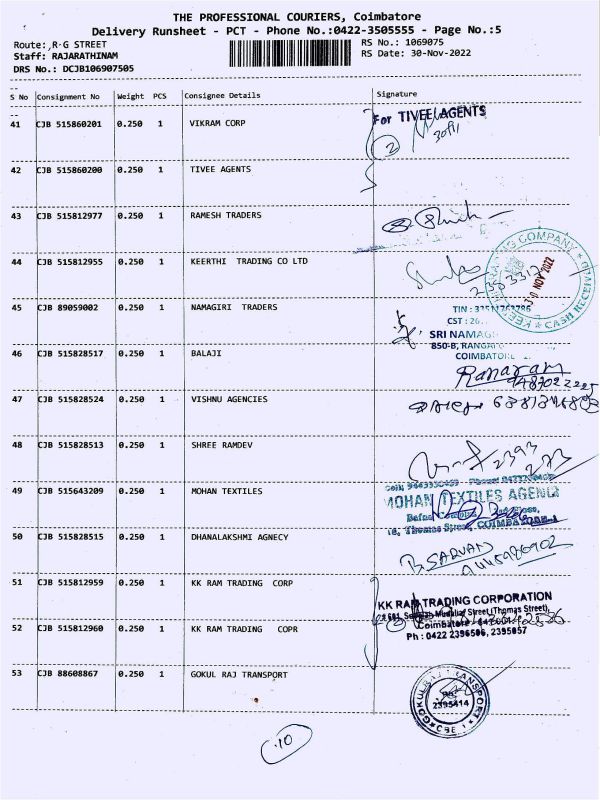 THE PROFESSIONAL COURIERS, Coimbatore
Delivery Runsheet - PCT - Phone No.:0422-3505555 - Page No.:5
Route: R-G STREET
RS No.: 1069075
Staff: RAJARATHINAM
RS Date: 30-Nov-2022
DRS No.: DCJB106907505
S No Consignment No Weight PCS Consignee Details Signature
41 CJB 515860201 0.250 1 VIKRAM CORP
For TIVEE AGENTS
2
30/11
42 CJB 515860200 0.250 1 TIVEE AGENTS
43 CJB 515812977 0.250 1 RAMESH TRADERS
44 CJB 515812955 0.250 1 KEERTHI TRADING CO LTD
TRADING COMPANY * CASH RECEIVED *
30 NOV 2022
45 CJB 89059002 0.250 1 NAMAGIRI TRADERS
CST : 26
SRI NAMAG
850-B, RANGA
COIMBATORE
46 CJB 515828517 0.250 1 BALAJI
Ranaram
9487022225
47 CJB 515828524 0.250 1 VISHNU AGENCIES
48 CJB 515828513 0.250 1 SHREE RAMDEV
2393
273
49 CJB 515643209 0.250 1 MOHAN TEXTILES
MOHAN TEXTILES AGENCI
18, Thomas Street, COIMBATORE-1
50 CJB 515828515 0.250 1 DHANALAKSHMI AGNECY
B. SARVAN
51 CJB 515812959 0.250 1 KK RAM TRADING CORP
KK RAM TRADING CORPORATION
Street, (Thomas Street),
Coimbatore
Ph : 0422 2396506, 2395057
52 CJB 515812960 0.250 1 KK RAM TRADING COPR
53 CJB 88608867 0.250 1 GOKUL RAJ TRANSPORT
GOKUL RAJ TRANSPORT
2395414
CBE-1
10